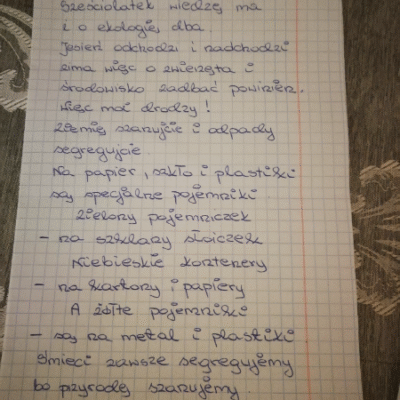 Sześciolatek wiedzę ma
i o ekologię dba.
Jesień odchodzi i nadchodzi
zima więc o zwierzęta i
środowisko zadbać powinien.
Więc moi drodzy!
Ziemię szanujcie i odpady
segregujcie
Na papier, szkło i plastiki
są specjalne pojemniki
Zielony pojemniczek
- na szklany słoiczek
Niebieskie kontenery
- na kartony i papiery
A żółte pojemniki
- są na metal i plastiki
Śmieci zawsze segregujemy
bo przyrodę szanujemy